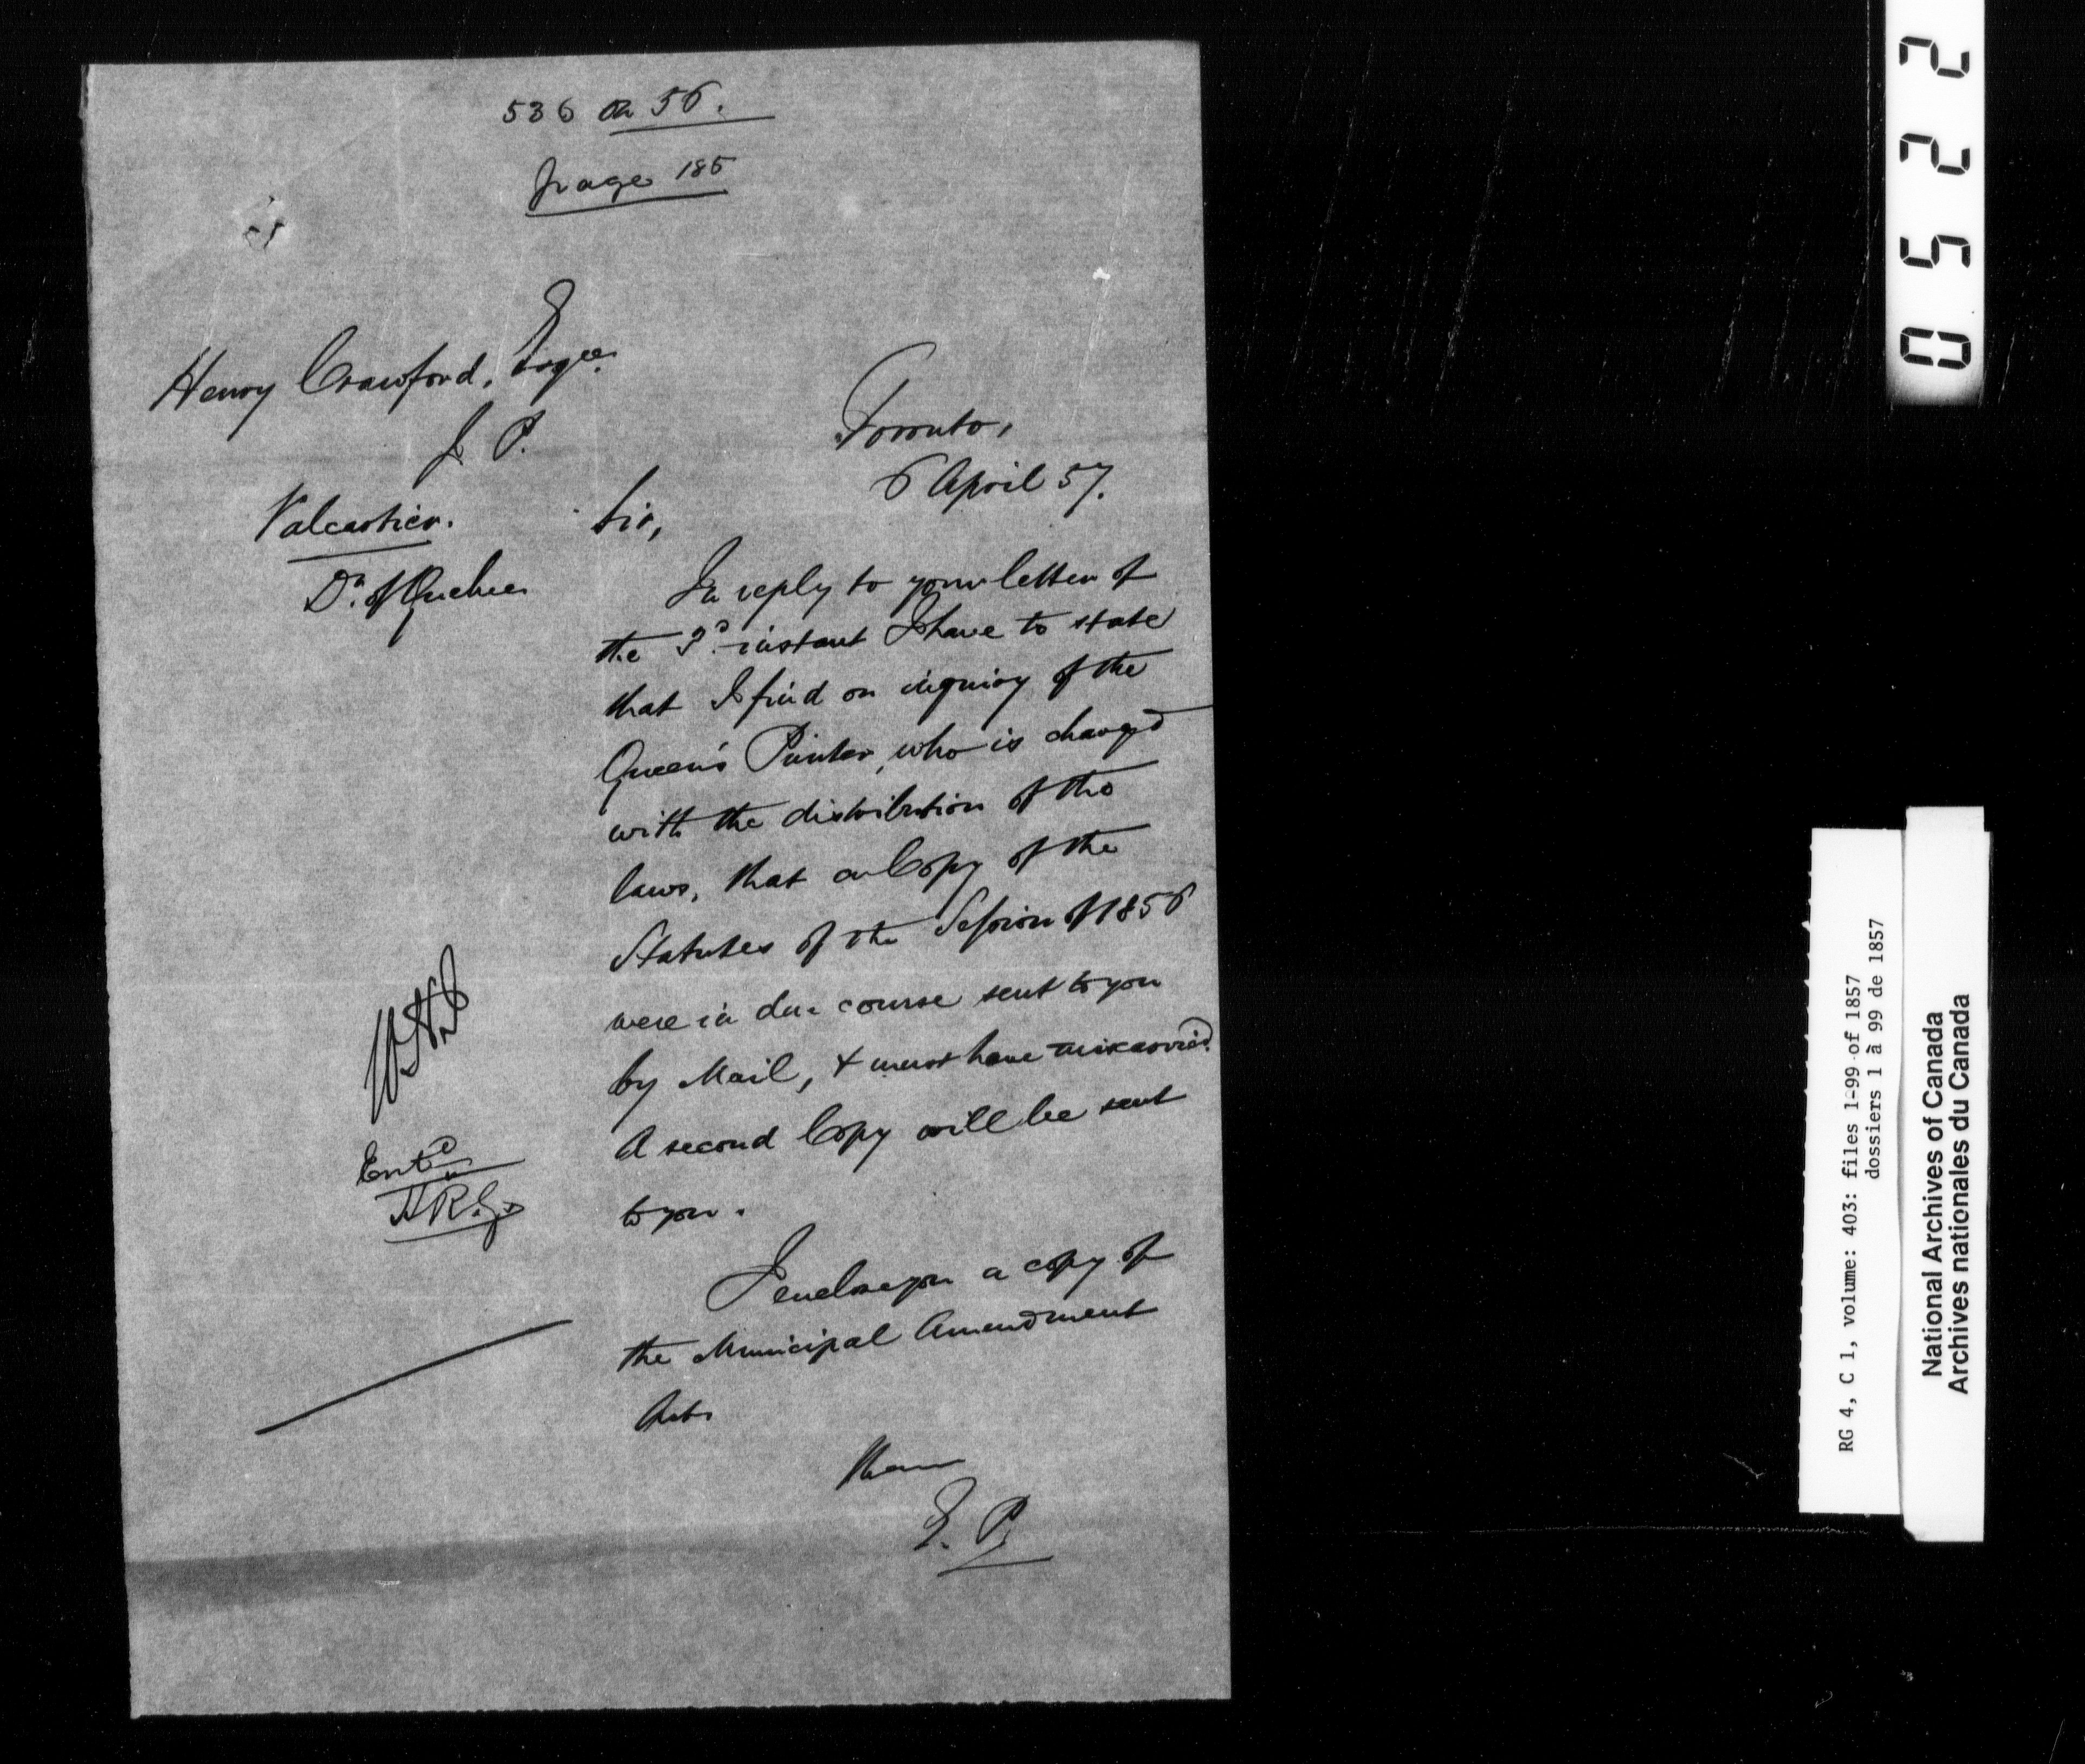 536 on 56.
page 185
Henry Crawford, Esqre.
J. P.
Valcartier.
Dn. of Quebec
Toronto,
6 April 57.
Sir,
In reply to your letter of
the 3d. instant I have to state
that I find on inquiry of the
Queen's Printer, who is charged
with the distribution of the
laws, that a Copy of the
Statutes of the Session of 1856
were in due course sent to you
by Mail, & must have miscarried.
A second Copy will be sent
to you.
I enclose you a copy of
the Municipal Amendment
Act.
Entd
H.R.G.
E. P.
0522
RG 4, C 1, volume: 403: files 1-99 of 1857
dossiers 1 à 99 de 1857
National Archives of Canada
Archives nationales du Canada